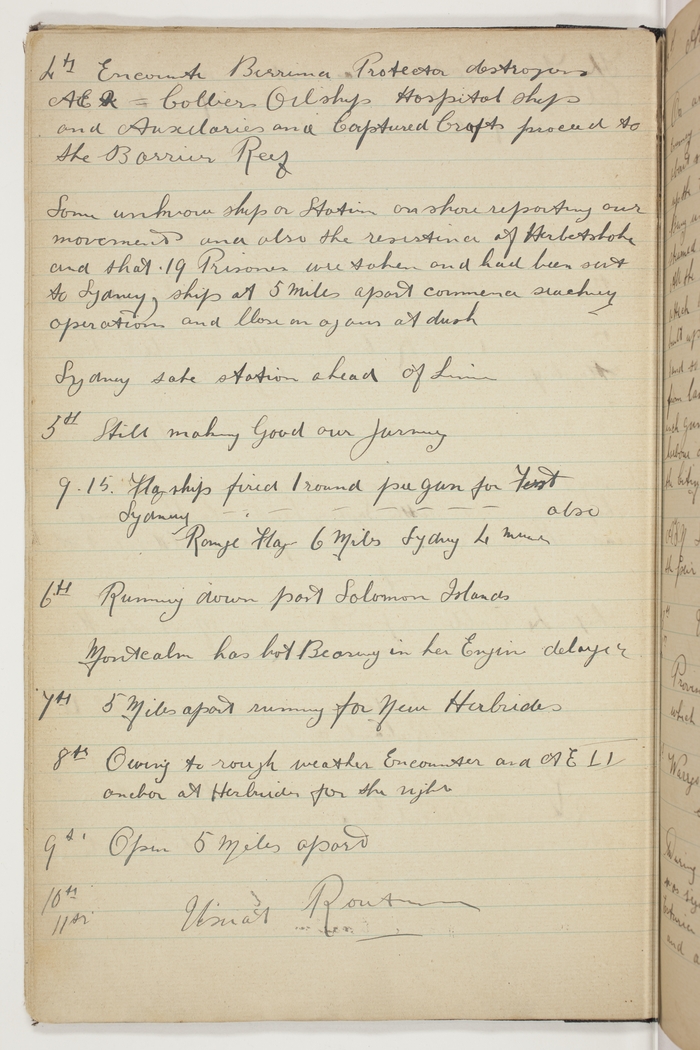 4th Encounter Berrima Protector destroyers
AE2 = Colliers Oilships Hospital ships
and Auxilaries and Captured Crafts proceed to
the Barrier Reef
Some unknow ship or Station on shore reporting our
movements and also the resistince of Herbetshohe
and that 19 Prisoners were taken and had been sent
to Sydney, ships at 5 Miles apart commence seaching
operations and Close on again at dusk
Sydney take station ahead of Line
5th Still making Good our Journey
9.15. Flag ship fired 1 round per gun for Test
Sydney - - - - - - also
Range Flag 6 Miles Sydney 4 miles
6th Running down past Solomon Islands
Montcalm has hot Bearing in her Engine delaying
7th 5 Miles apart running for New Herbrides
8th Owing to rough weather Encounter and AE II
anchor at Herbrides for the night
9th Open 5 Miles apart
10th
11th Usual Routine